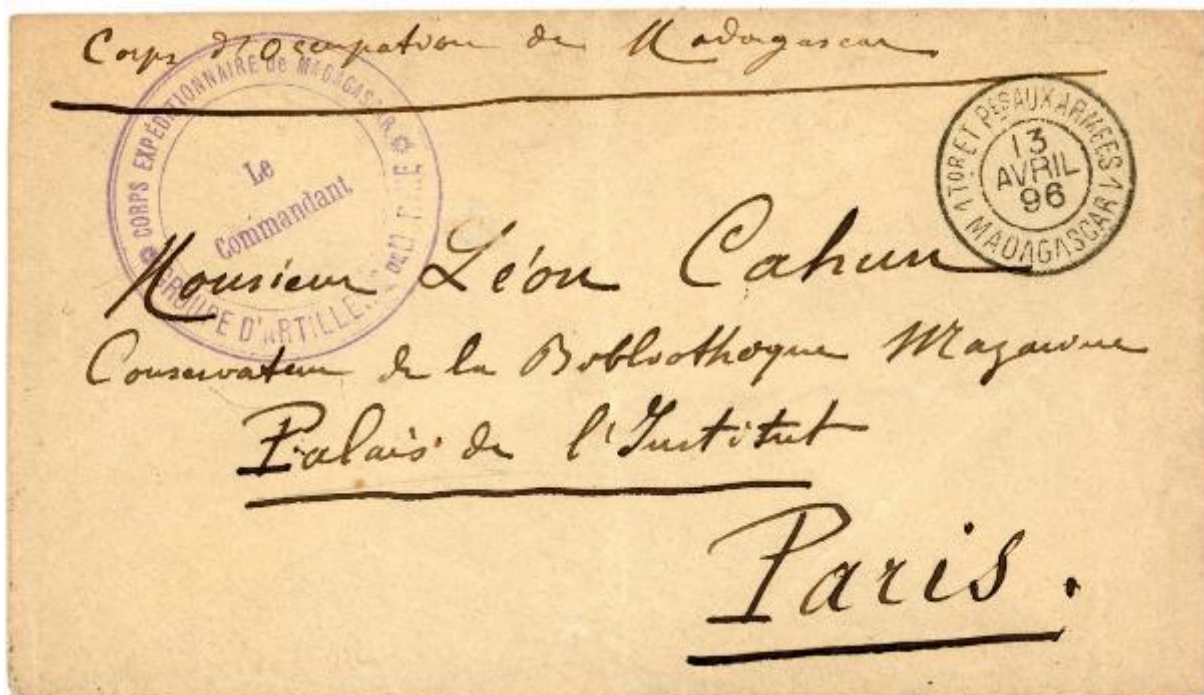 Corps d'Occupation de Madagascar
✽ CORPS EXPÉDITIONNAIRE de MADAGASCAR ✽
GROUPE D'ARTILLERIE DE LA MARINE
Le
Commandant
1 TOR ET PES AUX ARMEES 1
13
AVRIL
96
MADAGASCAR
Monsieur Léon Cahun
Conservateur de la Bibliotheque Mazarine
Palais de l'Institut
Paris.